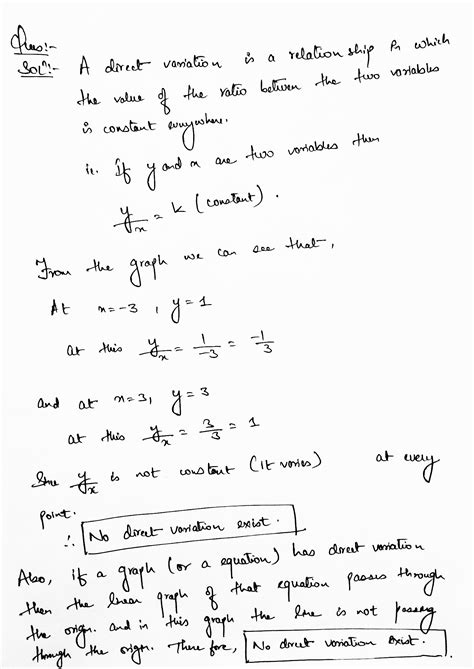 Ques:-
Solⁿ:- A direct variation is a relationship in which
the value of the ratio between the two variables
is constant everywhere.
ie. If y and x are two variables then
y/x = k (constant).
From the graph we can see that,
At x=-3 , y=1
at this y/x = 1/-3 = -1/3
and at x=3, y=3
at this y/x = 3/3 = 1
Since y/x is not constant (it varies) at every
point.
∴ No direct variation exist.
Also, if a graph (or a equation) has direct variation
then the linear graph of that equation passes through
the origin. and in this graph the line is not passing
through the origin. There fore, No direct variation exist.